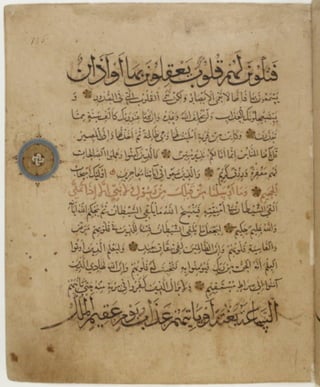 فتكون لهم قلوب يعقلون بها أو آذان
يسمعون بها فإنها لا تعمى الأبصار ولكن تعمى القلوب التي في الصدور و
يستعجلونك بالعذاب ولن يخلف الله وعده وإن يوما عند ربك كألف سنة مما
تعدون وكأين من قرية أمليت لها وهي ظالمة ثم أخذتها وإلي المصير
قل يا أيها الناس إنما أنا لكم نذير مبين فالذين آمنوا وعملوا الصالحات
لهم مغفرة ورزق كريم والذين سعوا في آياتنا معاجزين أولئك أصحاب
الجحيم وما أرسلنا من قبلك من رسول ولا نبي إلا إذا تمنى
ألقى الشيطان في أمنيته فينسخ الله ما يلقي الشيطان ثم يحكم الله آياته
والله عليم حكيم ليجعل ما يلقي الشيطان فتنة للذين في قلوبهم مرض
والقاسية قلوبهم وإن الظالمين لفي شقاق بعيد وليعلم الذين أوتوا
العلم أنه الحق من ربك فيؤمنوا به فتخبت له قلوبهم وإن الله لهاد الذين
آمنوا إلى صراط مستقيم ولا يزال الذين كفروا في مرية منه حتى تأتيهم
الساعة بغتة أو يأتيهم عذاب يوم عقيم الملك